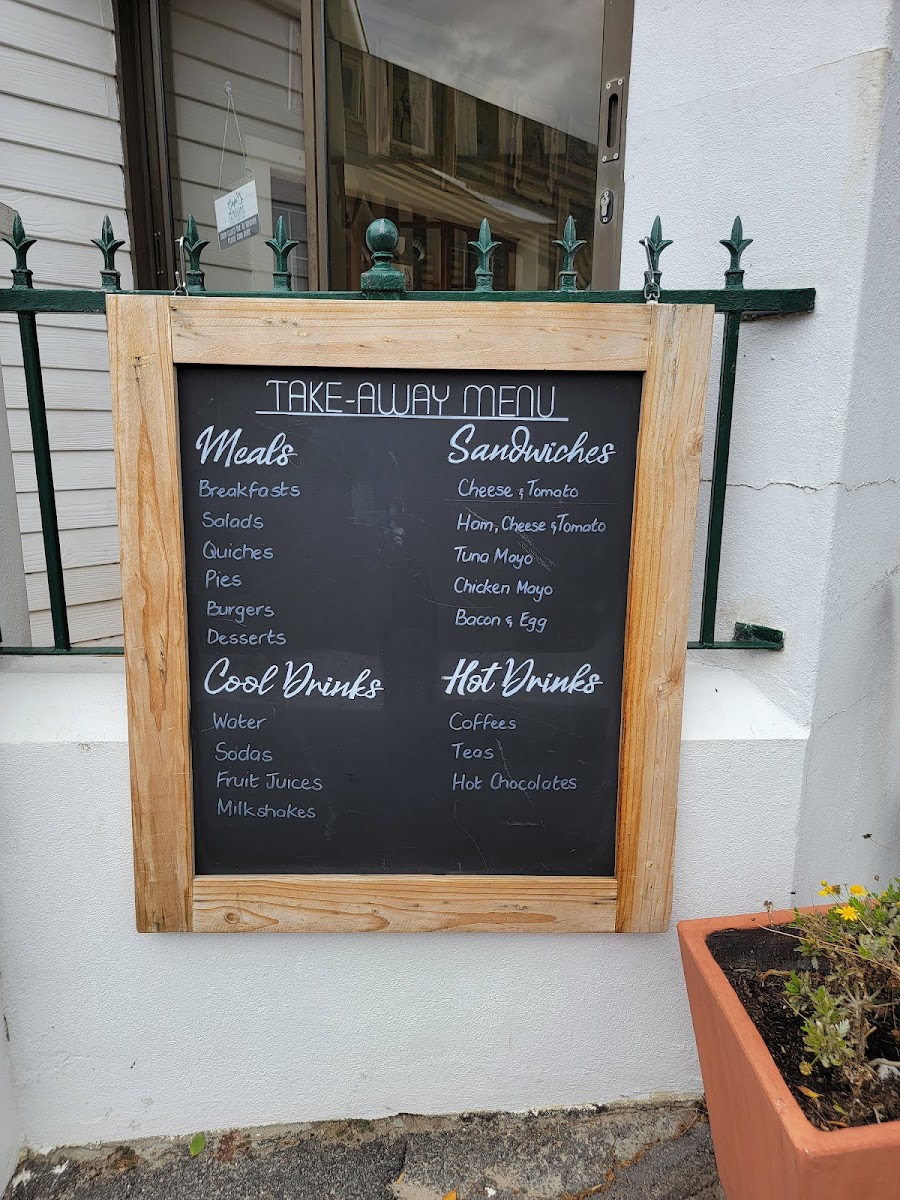 TAKE-AWAY MENU
Meals
Breakfasts
Salads
Quiches
Pies
Burgers
Desserts
Sandwiches
Cheese & Tomato
Ham, Cheese & Tomato
Tuna Mayo
Chicken Mayo
Bacon & Egg
Cool Drinks
Water
Sodas
Fruit Juices
Milkshakes
Hot Drinks
Coffees
Teas
Hot Chocolates